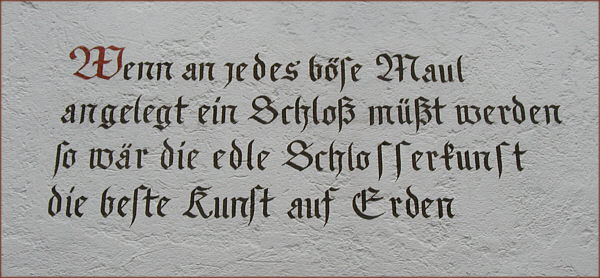 Wenn an jedes böse Maul
angelegt ein Schloß müßt werden
so wär die edle Schlosserkunst
die beste Kunst auf Erden